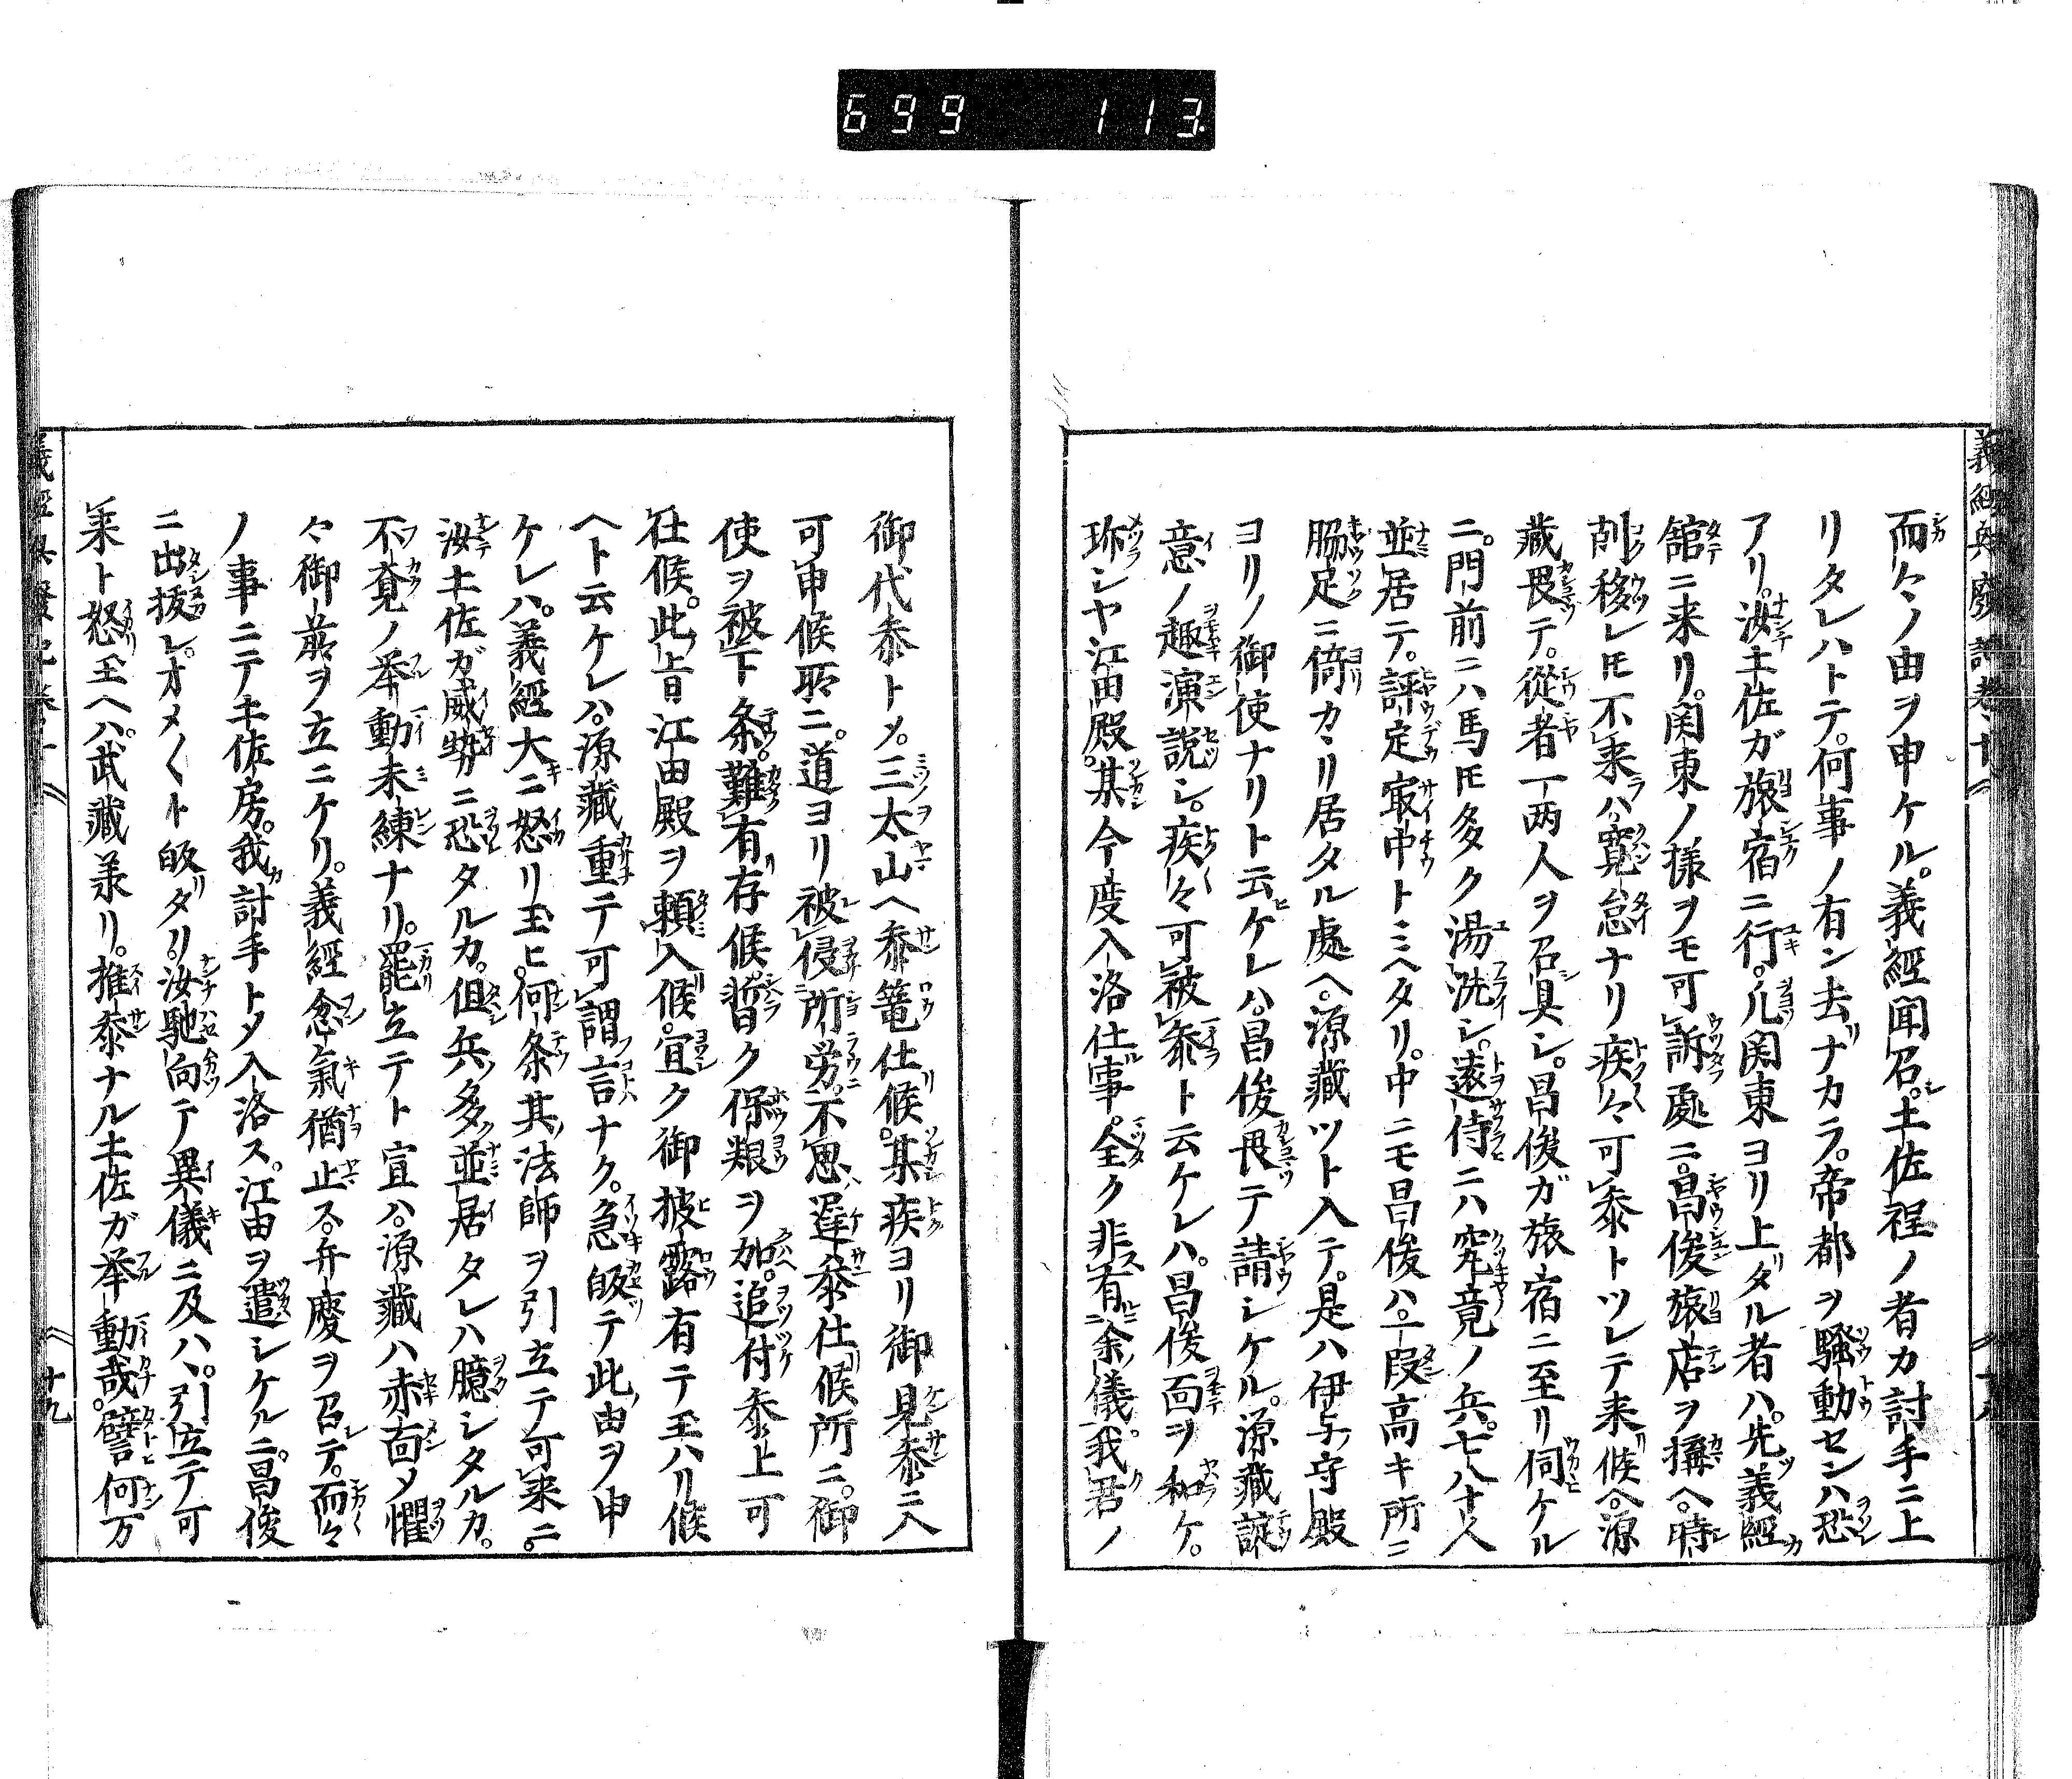 699 113.
而々ノ由ヲ申ケル。義經聞召。土佐程ノ者カ討手ニ上
リタレハトテ。何事ノ有ン去ナカラ。帝都ヲ騒動センハ恐
アリ。汝土佐ガ旅宿ニ行。凡関東ヨリ上タル者ハ。先義經カ
舘ニ来リ。関東ノ様ヲモ可訴處ニ。昌俊旅店ヲ搆ヘ。時
刻移レ𪜈不来ハ寛怠ナリ疾々可参トツレテ来候ヘ。源
藏畏テ。從者一両人ヲ召具シ。昌俊ガ旅宿ニ至リ伺ケル
ニ。門前ニハ馬𪜈多ク湯洗シ。遠侍ニハ究竟ノ兵。七八十人
並居テ。評定冣中トミヘタリ。中ニモ昌俊ハ。一段高キ所ニ
脇足ニ倚カヽリ居タル處ヘ。源藏ツト入テ。是ハ伊与守殿
ヨリノ御使ナリト云ケレハ。昌俊畏テ請シケル。源藏諚
意ノ趣演説シ。疾々可被参ト云ケレハ。昌俊面ヲ和ケ。
珎シヤ江田殿。某今度入洛仕事。全ク非有余儀。我君ノ
御代参トメ。三太山ヘ参篭仕候。某疾ヨリ御見参ニ入
可申候耴ニ。道ヨリ被侵所労。不思遅参仕候所ニ。御
使ヲ被下条。難有存候。暫ク保粮ヲ加。追付参上可
仕候。此旨江田殿ヲ頼入候。宜ク御披露有テ玉ハリ候
ヘト云ケレハ。源藏重テ可謂言ナク。急皈テ此由ヲ申
ケレハ。義經大ニ怒リ玉ヒ。何条其法師ヲ引立テ可来ニ。
汝土佐ガ威勢ニ恐タルカ。但兵多並居タレハ臆シタルカ。
不覚ノ举動未練ナリ。罷立テト宣ハ。源藏ハ赤面メ懼
々御前ヲ立ニケリ。義經忿氣猶止ス。弁慶ヲ召テ。而々
ノ事ニテ土佐房。我討手トメ入洛ス。江田ヲ遣シケルニ。昌俊
ニ出抜レ。オメ〳〵ト皈タリ。汝馳向テ異儀ニ及ハヽ。引立テ可
来ト怒玉ヘハ。武藏羕リ。推参ナル土佐ガ举動哉。譬何万
十九